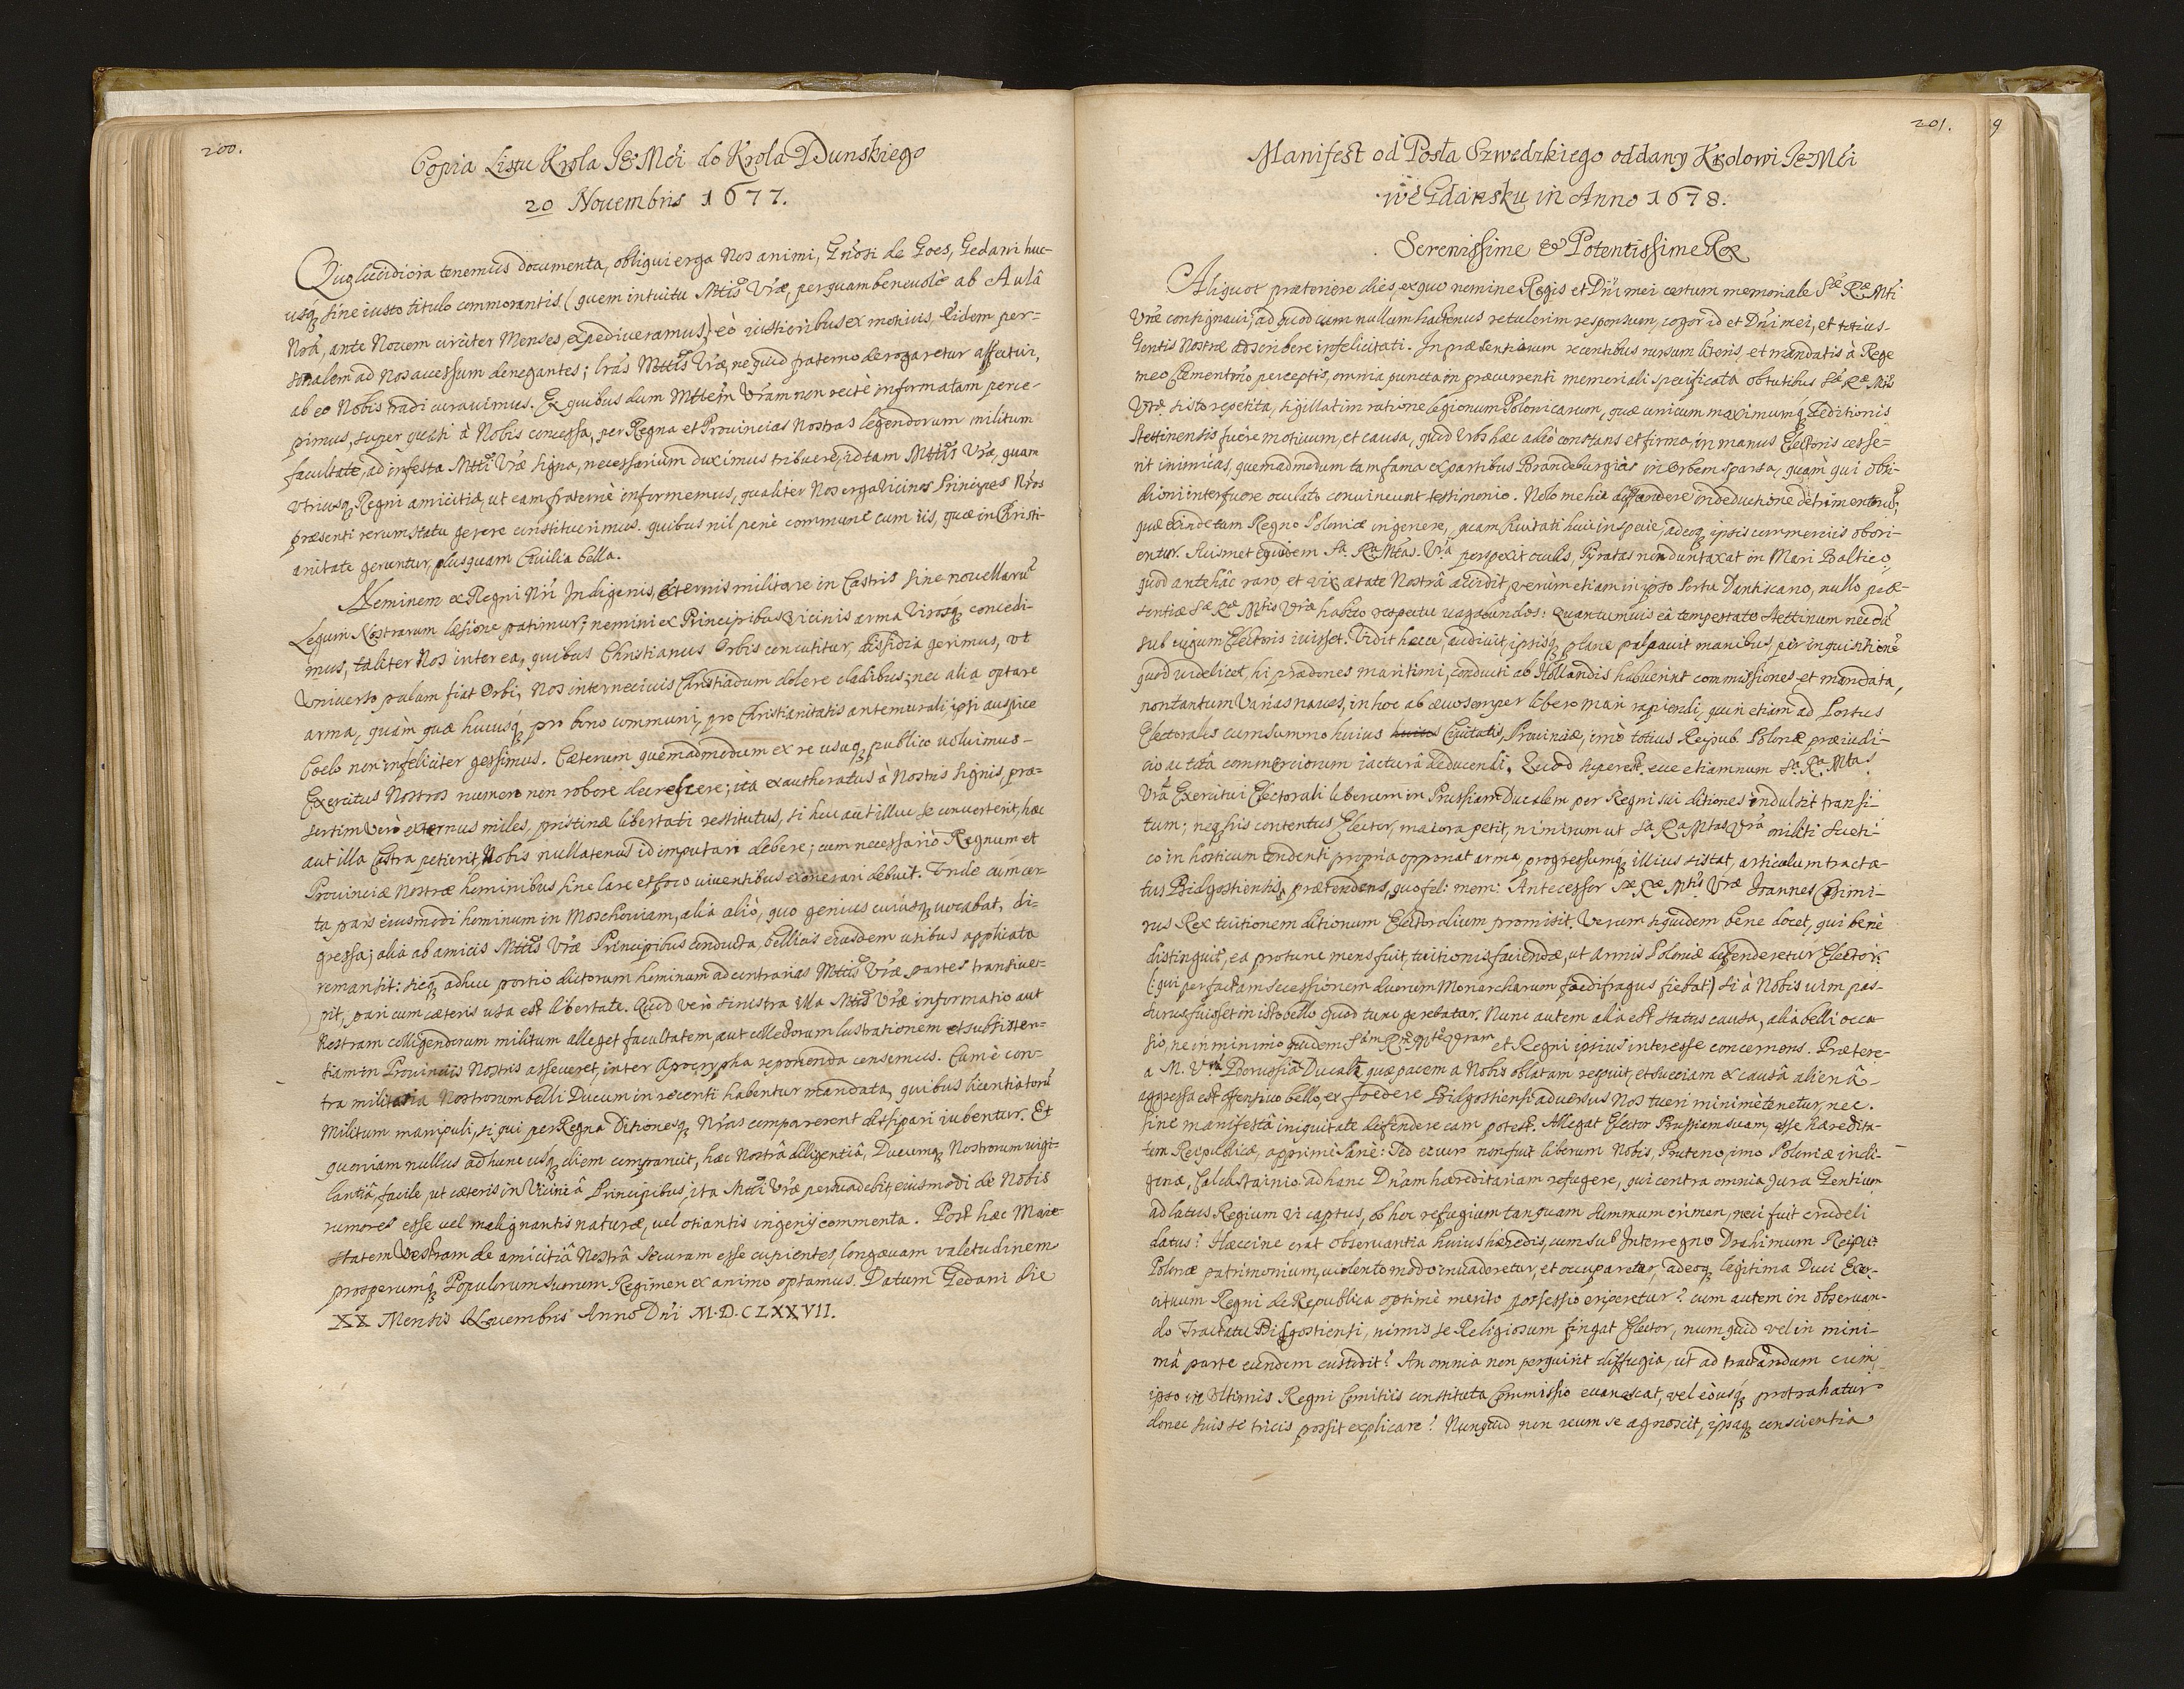 200.
Copia Listu Krola Je° Mći do Krola Dunskiego
20 Nouembris 1677.
Quo lucidiora tenemus documenta, obliqui erga Nos animi, Gnosi de Goes, Gedani huc-
usq₃ sine iusto titulo commorantis (quem intuitu Mttis Vræ, perquam beneuolè ab Aulâ
Nrâ, ante Nouem circiter Menses, expediueramus), eò iustioribus ex motiuis, Eidem per-
sonalem ad Nos accessum denegantes; lrás Mttis Vræ, ne quid fraterno derogaretur affectui,
ab eo Nobis tradi curauimus. Ex quibus dum Mttem Vram non rectè informatam perce-
pimus, super quasi à Nobis concessa, per Regna et Prouincias Nostras legendorum militum
facultate, ad infesta Mtti Vræ signa, necessarium duximus tribuere, id tam Mttis Vræ, quam
Vtriusq₃ Regni amicitiæ, ut eam fraternè informemus, qualiter Nos erga Vicinos Principes Nros
præsenti rerum statu gerere constituerimus. quibus nil penè commune cum iis, quæ in Christi-
anitate geruntur, plusquam Ciuilia bella.
Neminem ex Regni Nri Indigenis, externis militare in Castris sine nouellarū
Legum Nostrarum læsione patimur; nemini ex Principibus Vicinis arma Virosq₃ concedi-
mus, taliter Nos inter ea, quibus Christianus Orbis concutitur, dissidia gerimus, vt
Vniuerso palam fiat Orbi, Nos interneciuis Christiadum dolere cladibus; nec alia optare
arma, quàm quæ hucusq₃ pro bono communi, pro Christianitatis antemurali, ipsi auspice
Coelo non infeliciter gessimus. Cæterum quemadmodum ex re usuq₃ publico uoluimus
Exercitus Nostros numero non robore decrescere; ita exautheratus à Nostris signis, præ-
sertim Verò externus miles, pristinæ libertati restitutus, si huc aut illuc se conuerterit, hæc
aut illa Castra petierit, Nobis nullatenus id imputari debere; cum necessariò Regnum et
Prouinciæ Nostræ hominibus sine lare et foco viuentibus exonerari debuit. Vnde cum cer-
ta pars eiusmodi hominum in Moschouiam, alia aliò, quo genius cuiusq₃ uocabat, di-
gressa; alia ab amicis Mttis Vræ Principibus conducta, bellicis eorundem usibus applicata
remansit: sicq₃ adhuc portio dictorum hominum ad contrarias Mttis Vræ partes transiue-
rit, pari cum cæteris usa est libertate. Quod verò sinistra illa Mttis Vræ informatio aut
Nostram colligendorum militum alleget facultatem, aut collectorum lustrationem et subsisten-
tiam in Prouinciis Nostris asseueret, inter Apocrypha reponenda censemus. Cum è con-
tra militaria Nostrorum belli Ducum in recenti habentur mandata, quibus licentiatorū
Militum manipuli, si qui per Regna Ditionesq₃ Nras comparerent dissipari iubentur. Et
quoniam nullus ad hunc usq₃ diem comparuit, hac Nostrâ diligentiâ, Ducumq₃ Nostrorum uigi-
lantiâ, facile, ut cæteris in Viciniâ Principibus, ita Mtti Vræ persuadebit, eiusmodi de Nobis
rumores esse vel malignantis naturæ, vel otiantis ingenij commenta. Post hæc Maie-
statem Vestram de amicitiâ Nostrâ securam esse cupientes, longæuam valetudinem
prosperumq₃ Populorum suorum Regimen ex animo optamus. Datum Gedani die
XX Mensis Nouembris Anno Dni M.D.CLXXVII.
201.
9
Manifest od Posła Szwedzkiego oddany Krolowi Je° Mći
we Gdansku in Anno 1678.
Serenissime & Potentissime Rex
Aliquot præteriere dies, ex quo nomine Regis et Dni mei certum memoriale Sæ Ræ Mti
Vræ consignaui, ad quod cum nullum hactenus retulerim responsum, cogor id et Dni mei, et totius
Gentis Nostræ adscribere infelicitati. In præsentiarum recentibus rursum literis, et mandatis à Rege
meo Clementmo perceptis, omnia puncta in præcurrenti memoriali specificata obtutibus Sæ Ræ Mtis
Vræ sisto repetita, sigillatim ratione legionum Polonicarum, quæ unicum maximumq₃ deditionis
Stettinensis fuêre motiuum, et causa, quod Vrbs hæc adeò constans et firma, in manus Electoris cesse-
rit inimicas, quemadmodum tam fama ex partibus Brandeburgicis in Orbem sparsa, quàm qui obsi-
dioni interfuere oculato conuincunt testimonio. Nolo me hic diffundere in deductione detrimentorū,
quæ exinde tam Regno Poloniæ in genere, quam Ciuitati huic in specie, adeoq₃ ipsis commerciis obori-
entur. Suismet equidem Sa Ra Mtas Vra perspexit oculis, Pyratas non duntaxat in Mari Baltico,
quod antehâc raro, et vix ætate Nostrâ accidit, verùm etiam in ipso Portu Dantiscano, nullo præ-
sentiæ Sæ Ræ Mtis Vræ habito respectu uagabundos: Quantumuis eâ tempestate Stettinum necdū
sub iugum Electoris iuisset. Vidit hæc, audiuit, ipsisq₃ plane palpauit manibus, per inquisitionē
quod uidelicet, hi prædones maritimi, conducti ab Hollandis habuerint commissiones et mandata,
non tantum Varias naues, in hoc ab æuo semper libero mari rapiendi, quin etiam ad Portus
Electorales cum summo huius huius Ciuitatis, Prouinciæ, imò totius Reipub. Polonæ præiudi-
cio ac totâ commerciorum iacturâ adducendi. Quod superest, ecce etiamnum Sa Ra Mtas
Vra Exercitui Electorali liberum in Prussiam Ducalem per Regni sui ditiones indulsit transi-
tum; neq₃ his contentus Elector, maiora petit, nimirum ut Sa Ra Mtas Vra militi Sueti-
co in hosticum tendenti propria opponat arma, progressumq₃ illius sistat, articulum tracta-
tus Bidgostiensis prætendens, quo fel: mem: Antecessor Sæ Ræ Mtis Vræ Joannes Casimi-
rus Rex tuitionem ditionum Electoralium promisit. Verum siquidem bene docet, qui benè
distinguit, ea pro tunc mens fuit, tuitionis faciendæ, ut armis Poloniæ defenderetur Elector
(: qui per factam secessionem duorum Monarcharum foedifragus fiebat) si à Nobis uim pas-
surus fuisset in isto bello quod tunc gerebatur. Nunc autem alia est status causa, alia belli occa
sio, ne in minimo quidem Sam Ram Mtem Vram et Regni ipsius interesse concernens. Prætere-
a M. Vra Borussiā Ducalē quæ pacem a Nobis oblatam respuit, et Sueciam ex causâ alienâ
aggressa est offensiuo bello, ex foedere Bidgostiensi aduersus Nos tueri minimè tenetur, nec
sine manifestâ iniquitate defendere eam potest. Allegat Elector Prussiam suam, esse hæredita-
tem Reipublicæ, apprimè sanè: Sed ecur non fuit liberum Nobis, Pruteno, imo Poloniæ indi-
genæ, Calckstainio ad hanc Dnam hæreditariam refugere, qui contra omnia Jura Gentium
ad latus Regium vi captus, ob hoc refugium tanquam summum crimen, neci fuit crudeli
datus? Hæccine erat obseruantia huius hæredis, cum sub Interregno Drahimum Reipu:
Polonæ patrimonium, uiolento modo inuaderetur, et occuparetur, adeoq₃ legitima Duci Exer-
cituum Regni de Republica optimè merito possessio eriperetur? cum autem in obseruan-
do Tractatu Bidgostiensi, nimis se Religiosum fingat Elector, numquid vel in mini-
mâ parte eundem custodit? An omnia non perquirit diffugia, ut ad tractandum cum
ipso in Vltimis Regni Comitiis constituta Commissio euanescat, vel eousq₃ protrahatur
donec suis se tricis possit explicare? Nunquid non reum se agnoscit, ipsaq₃ conscientia